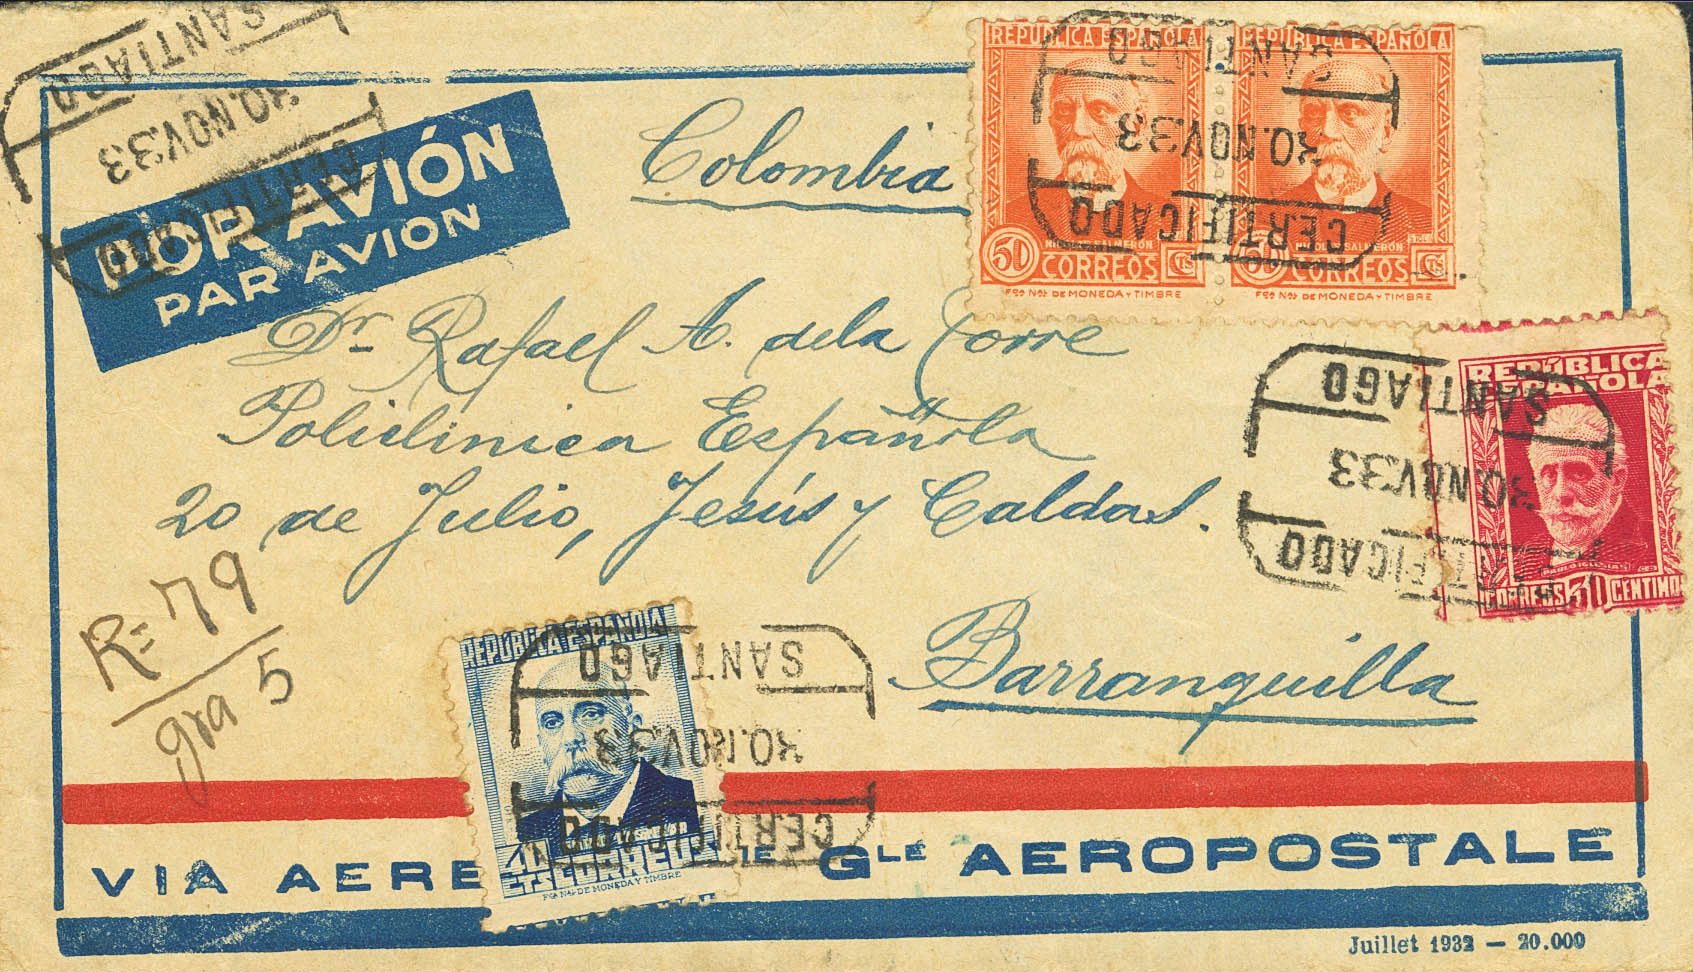 SANTIAGO
30.NOV.33
CERTIFICADO
POR AVIÓN
PAR AVION
Colombia
REPÚBLICA ESPAÑOLA
50 CORREOS CTS
NICOLÁS SALMERÓN
Fca Nal DE MONEDA Y TIMBRE
REPÚBLICA ESPAÑOLA
50 CORREOS CTS
NICOLÁS SALMERÓN
Fca Nal DE MONEDA Y TIMBRE
SANTIAGO
30.NOV.33
CERTIFICADO
Dr Rafael A. de la Torre
Policlinica Española
20 de Julio, Jesús y Caldas.
Barranquilla
REPÚBLICA
ESPAÑOLA
PABLO IGLESIAS
CORREOS 30 CENTIMO
SANTIAGO
30.NOV.33
CERTIFICADO
R=79
gra 5
REPÚBLICA ESPAÑOLA
CTS CORREOS
Fca Nal DE MONEDA Y TIMBRE
SANTIAGO
30.NOV.33
CERTIFICADO
VIA AERE IE GLE AEROPOSTALE
Juillet 1932 — 20.000